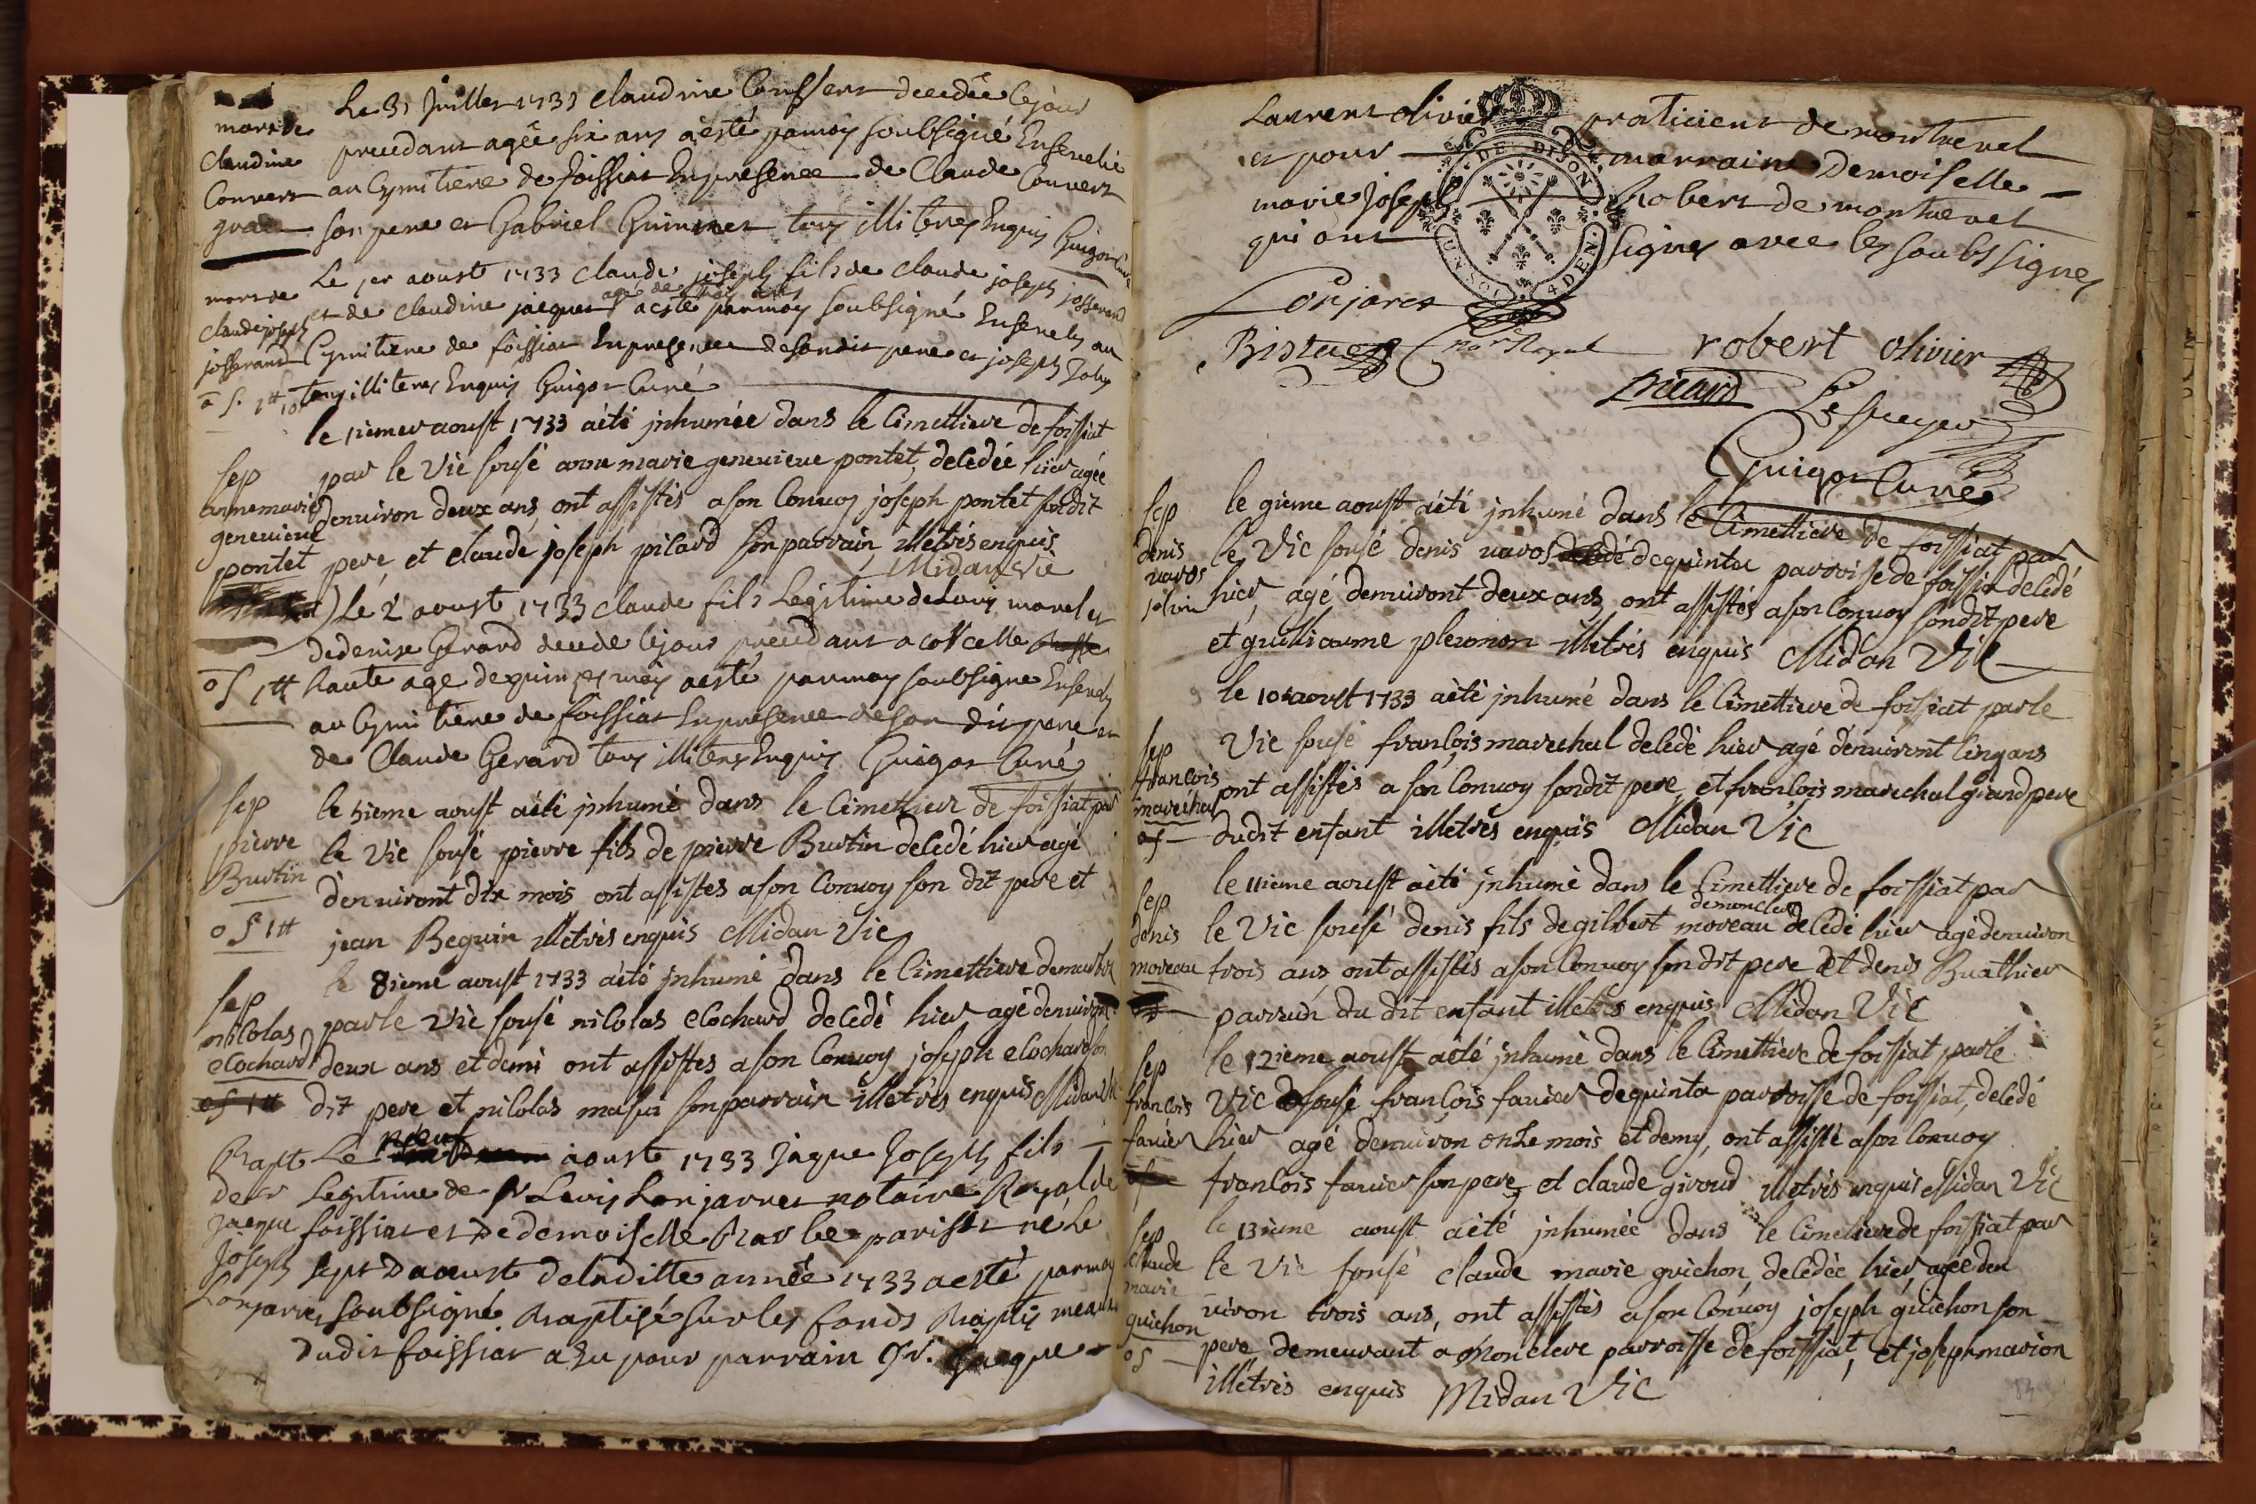 mort de
Claudine
Convert
gratis
Le 31 Juillet 1733 Claudine Convert decedée le jour
precedant agée six ans a esté par moy soubsigné Ensevelie
au Cymitiere de foissiat En presence de Claude Convert
son pere et Gabriel Guimmet tous illiteres Enquis Guigot Curé
mort de
Claude joseph
josserand
Le 1er aoust 1733 Claude joseph fils de Claude joseph josserand
et de Claudine jacquet agé de trois ans a esté par moy soubsigné Ensevely au
Cymitiere de foissiat En presence de son dit pere et joseph Joly
tous illiteres Enquis Guigot Curé
sep
anne marie
genevieve
pontet
le 1iemer aoust 1733 a été jnhumée dans le Cimettiere de foissiat
par le Vic sousé anne marie genevieve pontet decedée hier agée
denviron deux ans, ont assistés a son Convoy joseph pontet sondit
pere et claude joseph picard son parrain illetrés enquis
Midan Vic
Le 2 aoust 1733 Claude fils Legitime de Louis morel et
de denise Gerard decede le jour precedant a corcelle
haute age de quinze mois a esté par moy soubsigne Ensevely
au Cymitiere de foissiat En presence de son dit pere et
de Claude Gerard tous illiteres Enquis Guigot Curé
sep
pierre
Burtin
le 5ieme aoust a été jnhumé dans le Cimettiere de foissiat par
le Vic sousé pierre fils de pierre Burtin decedé hier agé
denviront dix mois ont assistes a son Convoy son dit pere et
jean Beguin illetrés enquis Midan Vic
sep
nicolas
clochard
le 8ieme aoust 1733 a été jnhumé dans le Cimettiere de
par le Vic sousé nicolas clochard decedé hier agé denviron
deux ans et demi ont assistes a son Convoy joseph clochard son
dit pere et nicolas son parrain illetrés enquis Midan Vic
Bapt
de
jacque
Joseph
Lonjarret
Le neuf aoust 1733 Jaque Joseph fils
Legitime de Sr Levis Lonjarret notaire Royal de
foissiat et De demoiselle Barbe parisot né le
sept D aoust de laditte année 1733 a esté par moy
soubsigné Baptisé sur les fonds Baptismeaux
dudit foissiat a Eu pour parrain Sr. Jacque
Laurent olivier praticient de montrevel
et pour marraine Demoiselle
marie joseph Robert de montrevel
qui ont signes avec les soubssignes
Lonjaret
not Royal
robert olivier
picard
Guigot Curé
sep
denis
le 9ieme aoust a été jnhumé dans le Cimettiere de foissiat par
le Vic sousé denis de quinta parroise de foissiat decedé
hier, agé denviront deux ans, ont assistés a son Convoy sondit pere
et guilliaume illetrés enquis Midan Vic
sep
francois
maréchal
le 10 aoust 1733 a été jnhumé dans le Cimettiere de foissiat par le
Vic sousé francois marechal decedé hier agé denviront Cinq ans
ont assistés a son Convoy son dit pere, et francois marechal grand pere
dudit enfant illetrés enquis Midan Vic
sep
denis
moreau
le 11ieme aoust a été jnhumé dans le Cimettiere de foissiat par
le Vic sousé denis fils de gilbert moreau decedé hier agé denviron
trois ans, ont assistés a son Convoy son dit pere et denis Buathier
parrain du dit enfant illetrés enquis Midan Vic
sep
francois
favier
le 12ieme aoust a été jnhumé dans le Cimettiere de foissiat par le
Vic sousé francois favier de quinta parroisse de foissiat, decedé
hier agé denviron onze mois et demy, ont assisté a son Convoy
francois favier son pere, et claude giroud illetrés enquis Midan Vic
sep
claude
marie
guichon
le 13ieme aoust a été jnhumée dans le Cimetiere de foissiat par
le Vic sousé claude marie guichon decedée hier agée den
viron trois ans, ont assistés a son Convoy joseph guichon son
pere demeurant a Monclere parroisse de foissiat, et joseph marion
illetrés enquis Midan Vic